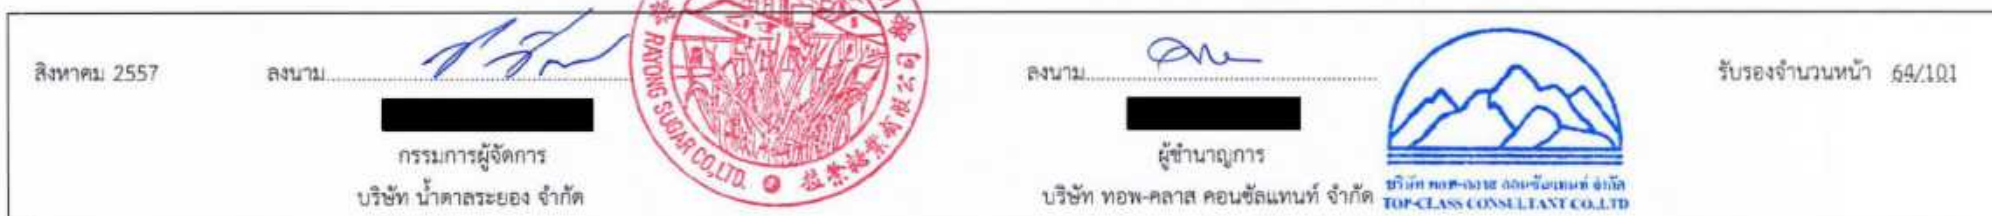 สิงหาคม 2557
ลงนาม
กรรมการผู้จัดการ
บริษัท น้ำตาลระยอง จำกัด
RAYONG SUGAR CO.,LTD.
ลงนาม
ผู้ชำนาญการ
บริษัท ทอพ-คลาส คอนซัลแทนท์ จำกัด
บริษัท ทอพ-คลาส คอนซัลแทนท์ จำกัด
TOP-CLASS CONSULTANT CO.,LTD
รับรองจำนวนหน้า 64/101